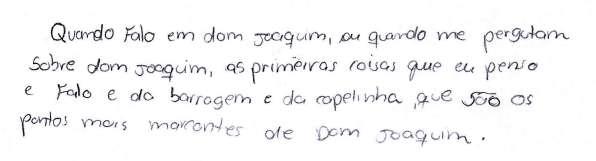 Quando Falo em dom Joaquim, ou quando me pergutam
Sobre dom Joaquim, as primeiras coisas que eu penso
e Falo e da barragem e da capelinha, que são os
pontos mais marcantes de Dom Joaquim.